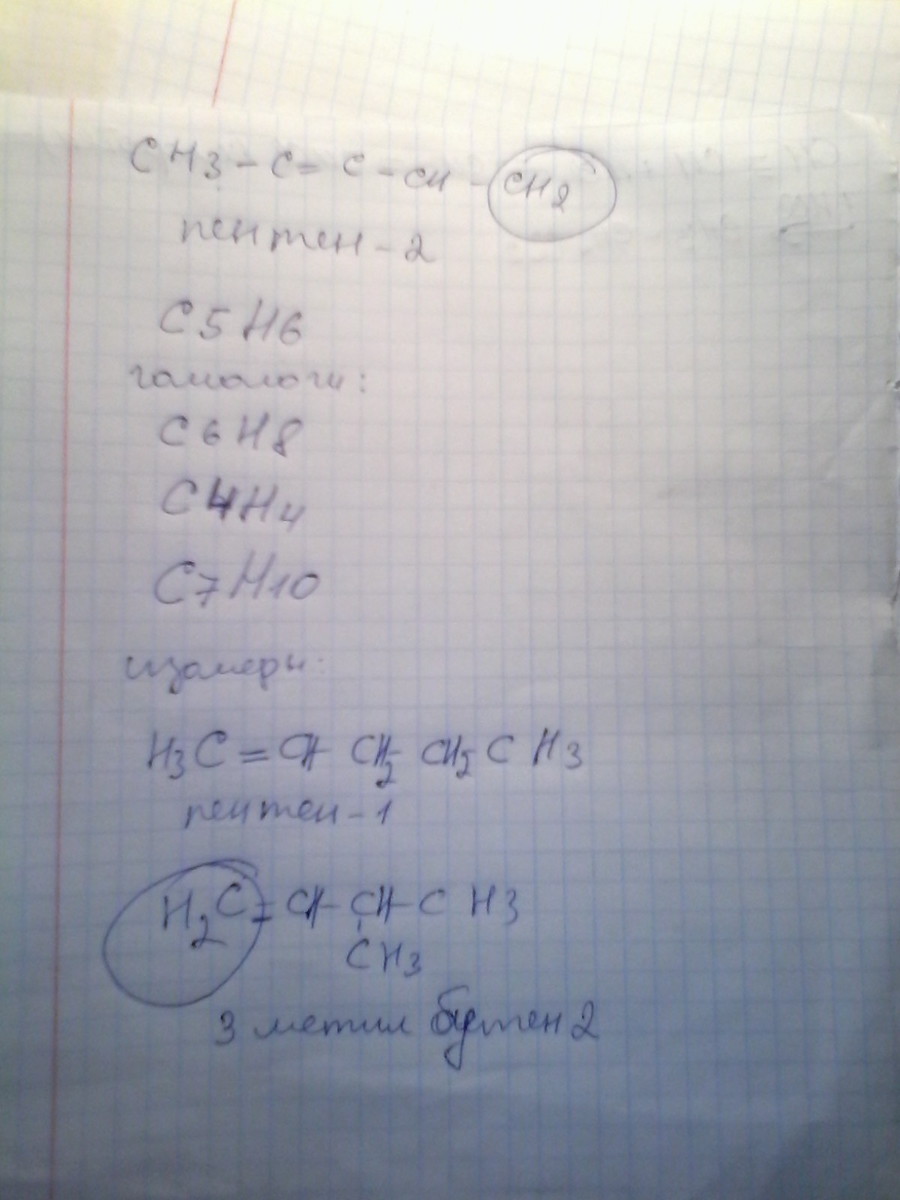 CH3 - C = C - CH - CH2
пентен-2
C5H6
гомологи:
C6H8
C4H4
C7H10
изомеры:
H3C = CH CH2 CH2 C H3
пентен-1
H2C = CH - CH - C H3
CH3
3 метил бутен 2